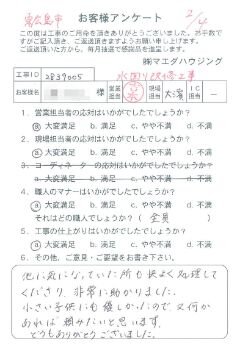 東広島市 お客様アンケート 2/4
この度は工事のご用命を頂きありがとうございました。お手数で
すがご記入頂き、ご返送頂きますようお願い申し上げます。
ご返送頂いた方から、毎月抽選で感謝品を進呈します。
㈱マエダハウジング
工事ID 2839005 水回り改修工事
お客様名 様 営業担当 現場担当 大澤 IC担当 ー
1. 営業担当者の応対はいかがでしたでしょうか?
ⓐ 大変満足 b. 満足 c. やや不満 d. 不満
2. 現場担当者の応対はいかがでしたでしょうか?
ⓐ 大変満足 b. 満足 c. やや不満 d. 不満
3. コーディネータの応対はいかがでしたでしょうか?
a. 大変満足 b. 満足 c. やや不満 d. 不満
4. 職人のマナーはいかがでしたでしょうか?
ⓐ 大変満足 b. 満足 c. やや不満 d. 不満
それはどの職人でしょうか?( 全員 )
5. 工事の仕上がりはいかがでしたでしょうか?
ⓐ 大変満足 b. 満足 c. やや不満 d. 不満
6. その他、ご意見・ご要望をお書き下さい。
他に気になっていた所も快よく処理して
くださり、非常に助かりました。
小さい子供にも優しかったので又何か
あれば頼みたいと思います。
どうもありがとうございました。